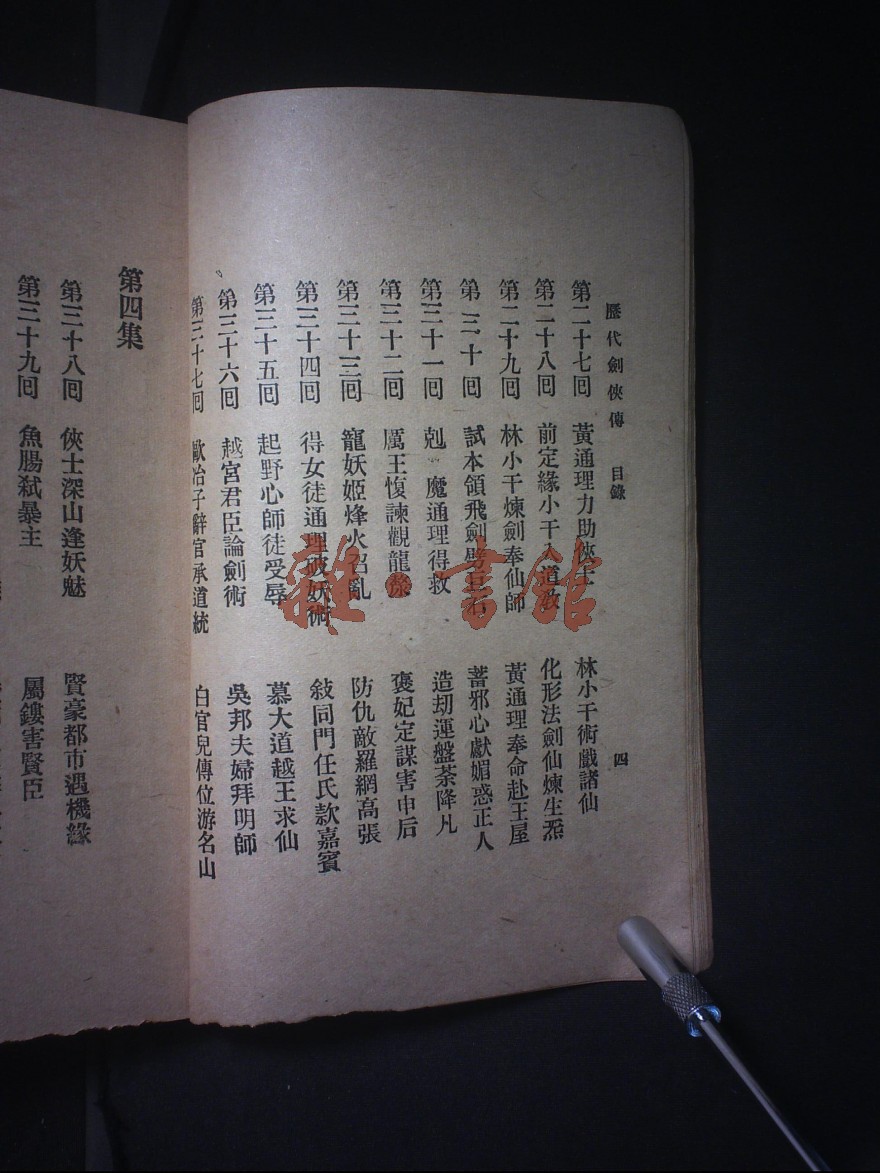 歷代劍俠傳　目錄　四
第二十七囘　黃通理力助俠士　林小干術戲諸仙
第二十八囘　前定緣小干入道教　化形法劍仙煉生炁
第二十九囘　林小干煉劍奉仙師　黃通理奉命赴王屋
第三十囘　試本領飛劍劈巨石　蓄邪心獻媚惑正人
第三十一囘　剋魔通理得救　造劫運盤荼降凡
第三十二囘　厲王愎諫觀龍漦　褒妃定謀害申后
第三十三囘　寵妖姬烽火召亂　防仇敵羅網高張
第三十四囘　得女徒通理破妖術　敍同門任氏款嘉賓
第三十五囘　起野心師徒受辱　慕大道越王求仙
第三十六囘　越宮君臣論劍術　吳邦夫婦拜明師
第三十七囘　歐冶子辭官承道統　白官兒傳位游名山
第四集
第三十八囘　俠士深山逢妖魅　賢豪都市遇機緣
第三十九囘　魚腸弒暴主　屬鏤害賢臣
雜·書館